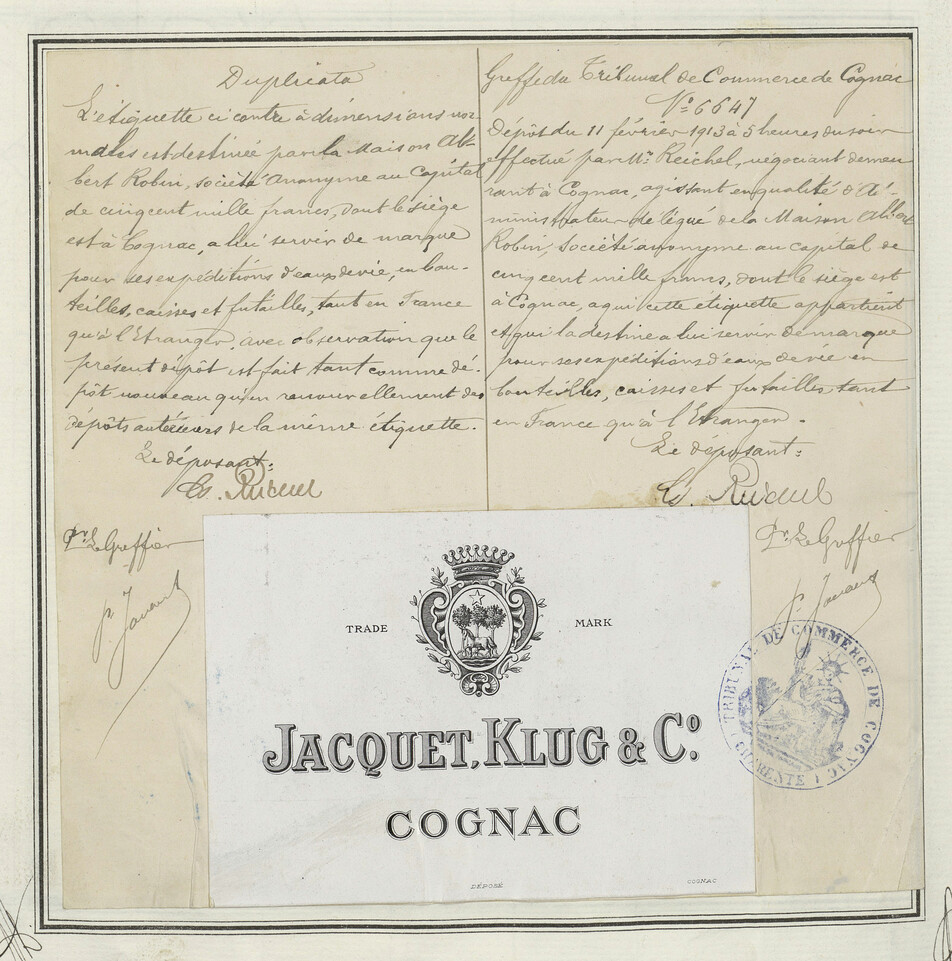 Duplicata
L'étiquette ci contre à dimensions nor
males est destinée par la Maison Al-
bert Robin, société Anonyme au Capital
de cinqcent mille francs, dont le siège
est à Cognac, a lui servir de marque
pour ses expéditions d'eaux de vie, en bou-
teilles, caisses et futailles, tant en France
qu'à l'Etranger, avec observation que le
présent dépôt est fait tant comme dé-
pôt nouveau qu'en renouvellement des
dépôts antérieurs de la même étiquette.
Le déposant:
Pr Le Greffier
Greffe du Tribunal de Commerce de Cognac
N° 6647
Dépôt du 11 février 1913 à 5 heures du soir
effectué par Mr. Reichel, négociant demeu
rant à Cognac, agissant en qualité d'Ad-
ministrateur-délégué de la Maison Albert
Robin, Société anonyme au capital de
cinqcent mille francs, dont le siège est
à Cognac, a qui cette étiquette appartient
et qui la destine a lui servir de marque
pour ses expéditions d'eaux de vie en
bouteilles, caisses et futailles, tant
en France qu'à l'Etranger.
Le déposant:
Pr Le Greffier
TRADE MARK
JACQUET, KLUG & Co.
COGNAC
DÉPOSÉ
COGNAC
TRIBUNAL DE COMMERCE DE COGNAC
(CHARENTE)